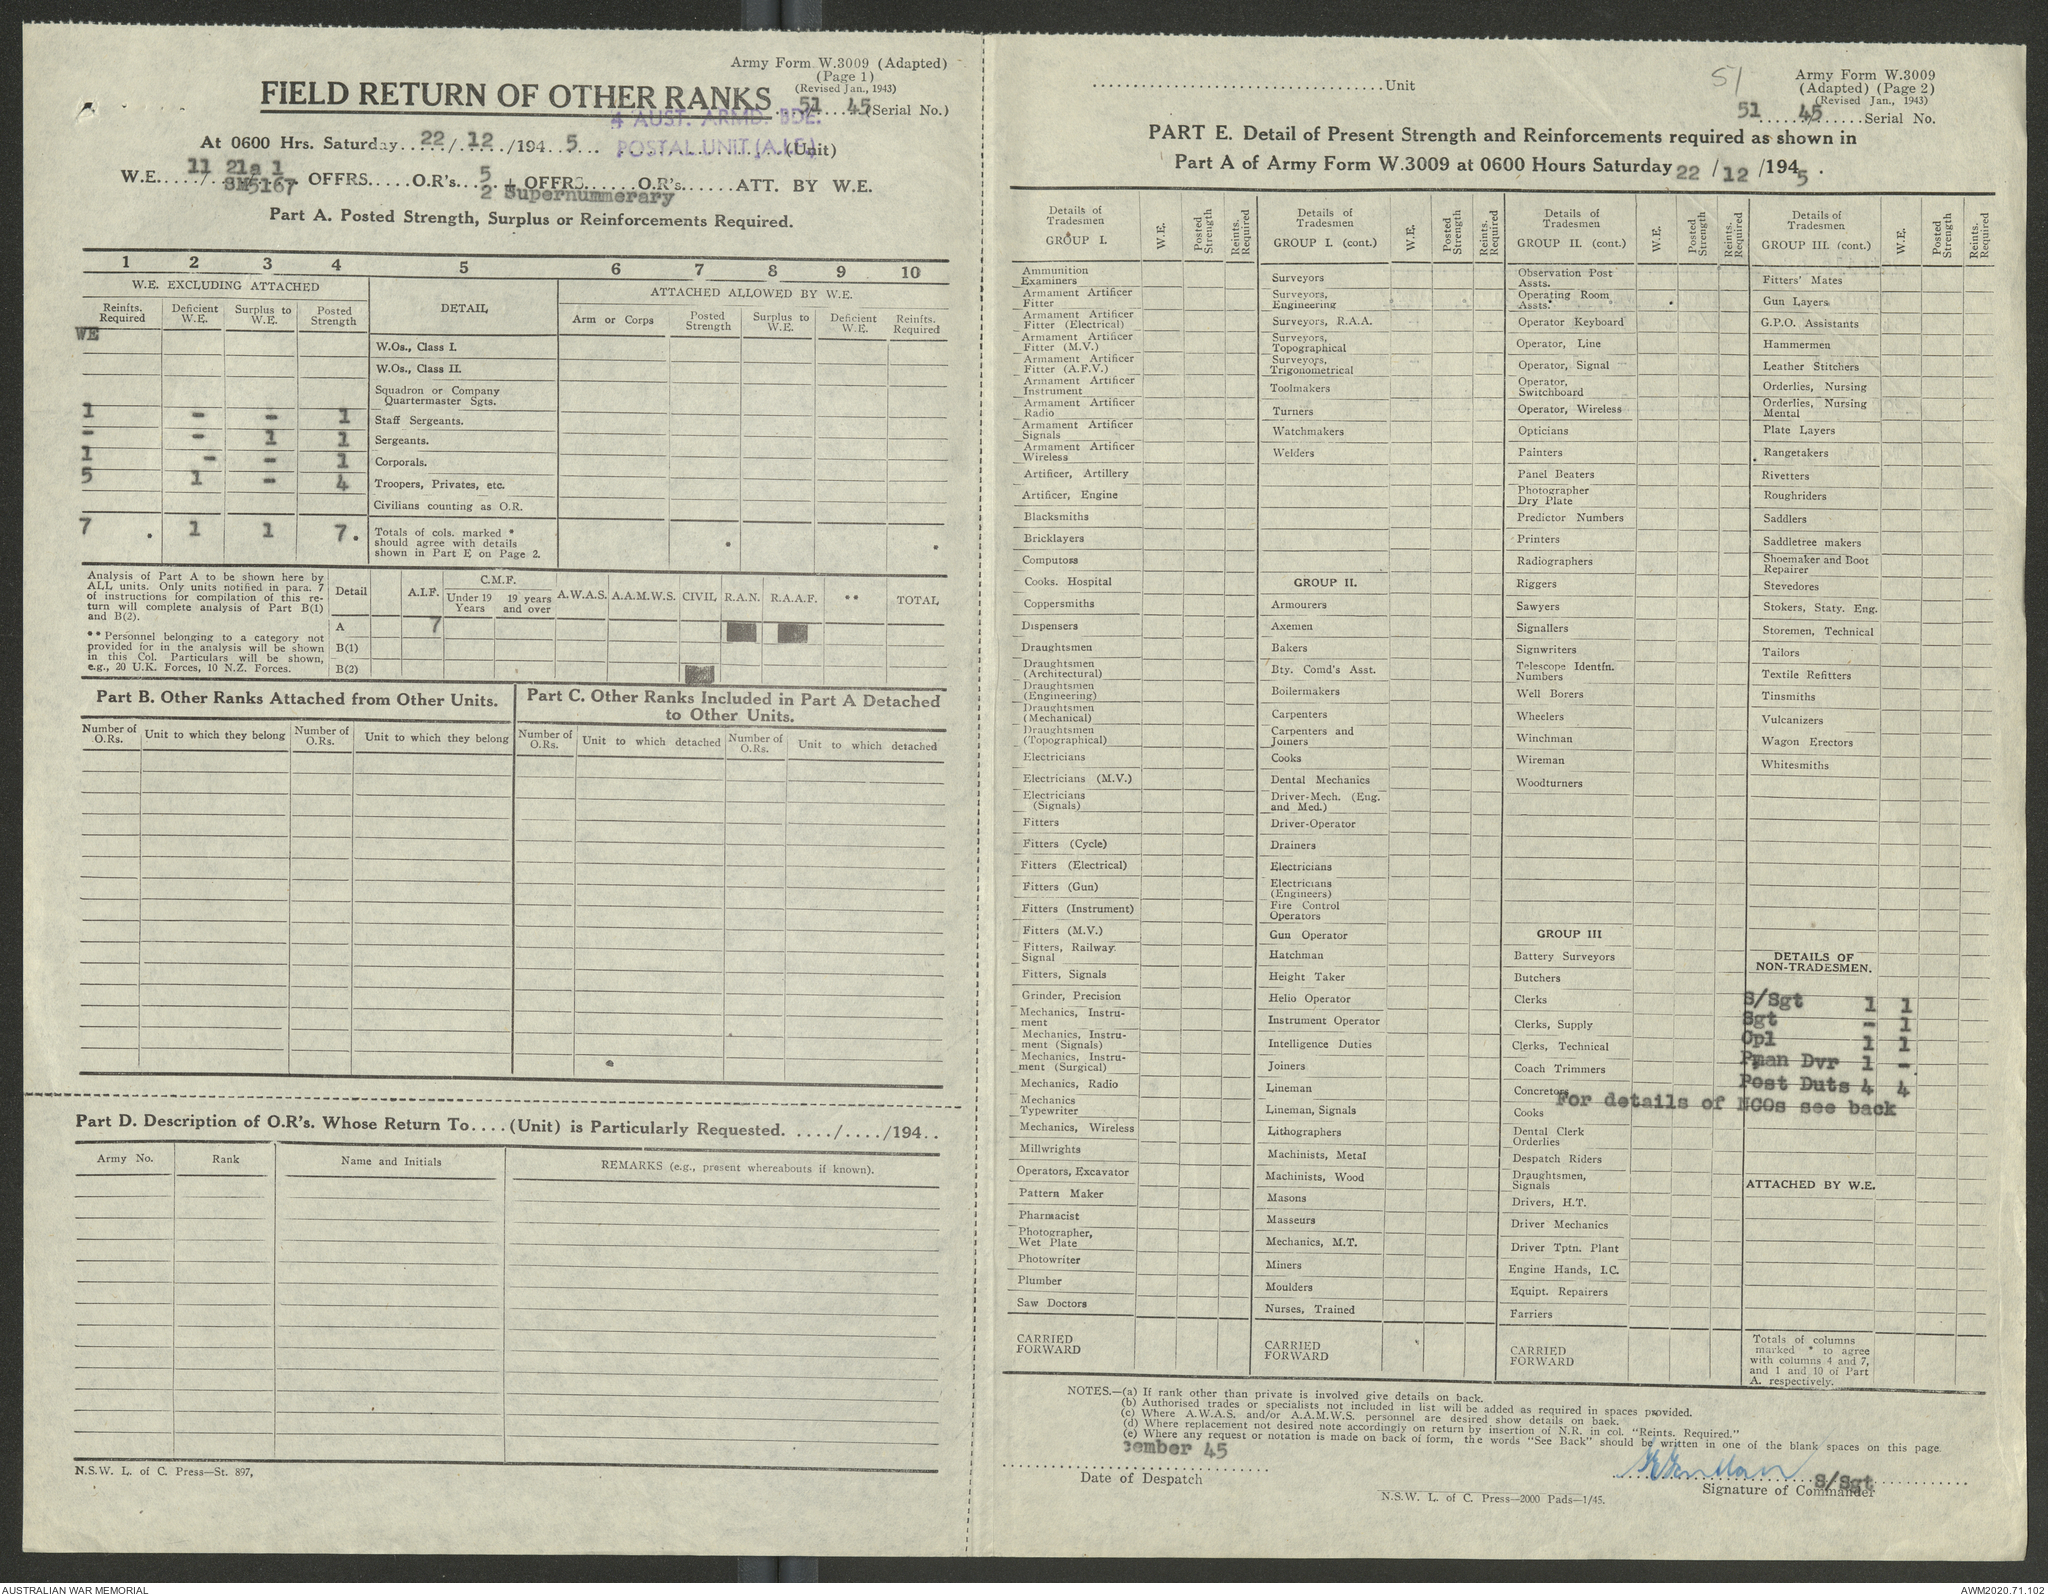 Army Form W.3009 (Adapted)
(Page 1)
(Revised Jan., 1943)
FIELD RETURN OF OTHER RANKS
51 45 (Serial No.)
4 AUST. ARMD. BDE.
At 0600 Hrs. Saturday 22/12/1945
POSTAL UNIT (A.I.F.) (Unit)
11 21a 1
W.E...../..... OFFRS.....O.R's... 5 + OFFRS......O.R's......ATT. BY W.E.
SM5167 2 Supernummerary
Part A. Posted Strength, Surplus or Reinforcements Required.
1 2 3 4 5 6 7 8 9 10
W.E. EXCLUDING ATTACHED DETAIL ATTACHED ALLOWED BY W.E.
Reinfts. Required Deficient W.E. Surplus to W.E. Posted Strength Arm or Corps Posted Strength Surplus to W.E. Deficient W.E. Reinfts. Required
WE
W.Os., Class I.
W.Os., Class II.
Squadron or Company Quartermaster Sgts.
1 - - 1 Staff Sergeants.
- - 1 1 Sergeants.
1 - - 1 Corporals.
5 1 - 4 Troopers, Privates, etc.
Civilians counting as O.R.
7 . 1 1 7. Totals of cols. marked *
should agree with details
shown in Part E on Page 2.
Analysis of Part A to be shown here by
ALL units. Only units notified in para. 7
of instructions for compilation of this re-
turn will complete analysis of Part B(1)
and B(2).
** Personnel belonging to a category not
provided for in the analysis will be shown
in this Col. Particulars will be shown,
e.g., 20 U.K. Forces, 10 N.Z. Forces.
Detail A.I.F. C.M.F. Under 19 Years 19 years and over A.W.A.S. A.A.M.W.S. CIVIL R.A.N. R.A.A.F. ** TOTAL
A 7
B(1)
B(2)
Part B. Other Ranks Attached from Other Units.
Number of O.Rs. Unit to which they belong Number of O.Rs. Unit to which they belong
Part C. Other Ranks Included in Part A Detached
to Other Units.
Number of O.Rs. Unit to which detached Number of O.Rs. Unit to which detached
Part D. Description of O.R's. Whose Return To....(Unit) is Particularly Requested. ..../..../194..
Army No. Rank Name and Initials REMARKS (e.g., present whereabouts if known).
N.S.W. L. of C. Press—St. 897,
....Unit
51
Army Form W.3009
(Adapted) (Page 2)
(Revised Jan., 1943)
51 45 Serial No.
PART E. Detail of Present Strength and Reinforcements required as shown in
Part A of Army Form W.3009 at 0600 Hours Saturday 22/12/1945.
Details of Tradesmen W.E. Posted Strength Reints. Required
GROUP I.
Ammunition Examiners
Armament Artificer Fitter
Armament Artificer Fitter (Electrical)
Armament Artificer Fitter (M.V.)
Armament Artificer Fitter (A.F.V.)
Armament Artificer Instrument
Armament Artificer Radio
Armament Artificer Signals
Armament Artificer Wireless
Artificer, Artillery
Artificer, Engine
Blacksmiths
Bricklayers
Computoss
Cooks. Hospital
Coppersmiths
Dispensers
Draughtsmen
Draughtsmen (Architectural)
Draughtsmen (Engineering)
Draughtsmen (Mechanical)
Draughtsmen (Topographical)
Electricians
Electricians (M.V.)
Electricians (Signals)
Fitters
Fitters (Cycle)
Fitters (Electrical)
Fitters (Gun)
Fitters (Instrument)
Fitters (M.V.)
Fitters, Railway. Signal
Fitters, Signals
Grinder, Precision
Mechanics, Instru-
ment
Mechanics, Instru-
ment (Signals)
Mechanics, Instru-
ment (Surgical)
Mechanics, Radio
Mechanics Typewriter
Mechanics, Wireless
Millwrights
Operators, Excavator
Pattern Maker
Pharmacist
Photographer, Wet Plate
Photowriter
Plumber
Saw Doctors
CARRIED FORWARD
Details of Tradesmen W.E. Posted Strength Reints. Required
GROUP I. (cont.)
Surveyors
Surveyors, Engineering
Surveyors, R.A.A.
Surveyors, Topographical
Surveyors, Trigonometrical
Toolmakers
Turners
Watchmakers
Welders
GROUP II.
Armourers
Axemen
Bakers
Bty. Comd's Asst.
Boilermakers
Carpenters
Carpenters and Joiners
Cooks
Dental Mechanics
Driver-Mech. (Eng. and Med.)
Driver-Operator
Drainers
Electricians
Electricians (Engineers)
Fire Control Operators
Gun Operator
Hatchman
Height Taker
Helio Operator
Instrument Operator
Intelligence Duties
Joiners
Lineman
Lineman, Signals
Lithographers
Machinists, Metal
Machinists, Wood
Masons
Masseurs
Mechanics, M.T.
Miners
Moulders
Nurses, Trained
CARRIED FORWARD
Details of Tradesmen W.E. Posted Strength Reints. Required
GROUP II. (cont.)
Observation Post Assts.
Operating Room Assts.
Operator Keyboard
Operator, Line
Operator, Signal
Operator, Switchboard
Operator, Wireless
Opticians
Painters
Panel Beaters
Photographer Dry Plate
Predictor Numbers
Printers
Radiographers
Riggers
Sawyers
Signallers
Signwriters
Telescope Identfn. Numbers
Well Borers
Wheelers
Winchman
Wireman
Woodturners
GROUP III
Battery Surveyors
Butchers
Clerks
Clerks, Supply
Clerks, Technical
Coach Trimmers
Concretors
Cooks
Dental Clerk Orderlies
Despatch Riders
Draughtsmen, Signals
Drivers, H.T.
Driver Mechanics
Driver Tptn. Plant
Engine Hands, I.C.
Equipt. Repairers
Farriers
CARRIED FORWARD
Details of Tradesmen W.E. Posted Strength Reints. Required
GROUP III. (cont.)
Fitters' Mates
Gun Layers
G.P.O. Assistants
Hammermen
Leather Stitchers
Orderlies, Nursing
Orderlies, Nursing Mental
Plate Layers
Rangetakers
Rivetters
Roughriders
Saddlers
Saddletree makers
Shoemaker and Boot Repairer
Stevedores
Stokers, Staty. Eng.
Storemen, Technical
Tailors
Textile Refitters
Tinsmiths
Vulcanizers
Wagon Erectors
Whitesmiths
DETAILS OF
NON-TRADESMEN.
S/Sgt 1 1
Sgt - 1
Cpl 1 1
Pman Dvr 1 -
Post Duts 4 4
For details of NCOs see back
ATTACHED BY W.E.
Totals of columns
marked * to agree
with columns 4 and 7,
and 1 and 10 of Part
A. respectively.
NOTES.—(a) If rank other than private is involved give details on back.
(b) Authorised trades or specialists not included in list will be added as required in spaces provided.
(c) Where A.W.A.S. and/or A.A.M.W.S. personnel are desired show details on back.
(d) Where replacement not desired note accordingly on return by insertion of N.R. in col. "Reints. Required."
(e) Where any request or notation is made on back of form, the words "See Back" should be written in one of the blank spaces on this page
cember 45
Date of Despatch
S/Sgt
Signature of Commander
N.S.W. L. of C. Press—2000 Pads—1/45.
AUSTRALIAN WAR MEMORIAL
AWM2020.71.102